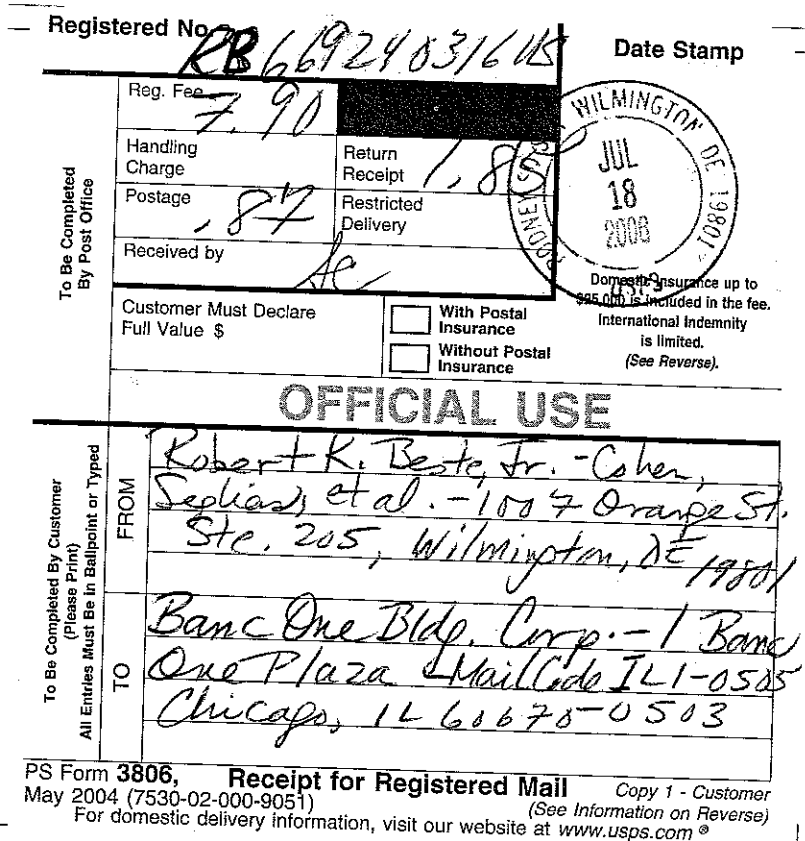 Registered No.
RB 669240316 US
Date Stamp
To Be Completed
By Post Office
Reg. Fee
7.90
Handling
Charge
Return
Receipt
1.85
Postage
.87
Restricted
Delivery
Received by
RODNEY SQ STA WILMINGTON DE 19801
JUL
18
2008
USPS
Domestic Insurance up to
$25,000 is included in the fee.
International Indemnity
is limited.
(See Reverse).
Customer Must Declare
Full Value $
With Postal
Insurance
Without Postal
Insurance
OFFICIAL USE
To Be Completed By Customer
(Please Print)
All Entries Must Be in Ballpoint or Typed
FROM
Robert K. Beste, Jr. - Cohen,
Seglias, et al. - 1007 Orange St.
Ste. 205, Wilmington, DE 19801
TO
Banc One Bldg. Corp. - 1 Banc
One Plaza Mail Code IL1-0505
Chicago, IL 60670-0503
PS Form 3806, Receipt for Registered Mail Copy 1 - Customer
May 2004 (7530-02-000-9051) (See Information on Reverse)
For domestic delivery information, visit our website at www.usps.com ®